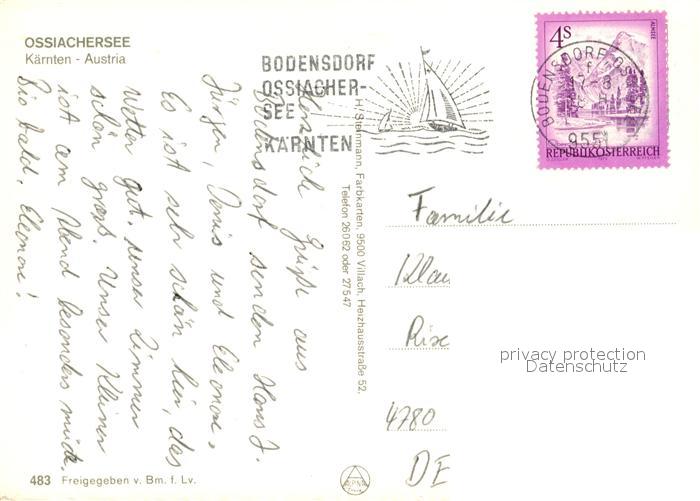 OSSIACHERSEE
Kärnten - Austria
BODENSDORF
OSSIACHER-
SEE
KÄRNTEN
4S
ALMSEE
REPUBLIK ÖSTERREICH
BODENSDORF OSS
9551
Herzliche Grüße aus
Bodensdorf senden Hans J.
Jürgen, Doris und Eleonore.
Es ist sehr schön hier, das
Wetter gut, unser Zimmer
schön groß. Unser Kleiner
ist am Abend besonders müde.
Bis bald, Eleonore!
H. Steinmann, Farbkarten, 9500 Villach, Heizhausstraße 52,
Telefon 26062 oder 27547
Familie
Klau
Rixe
4780
DE
privacy protection
Datenschutz
483 Freigegeben v. Bm. f. Lv.